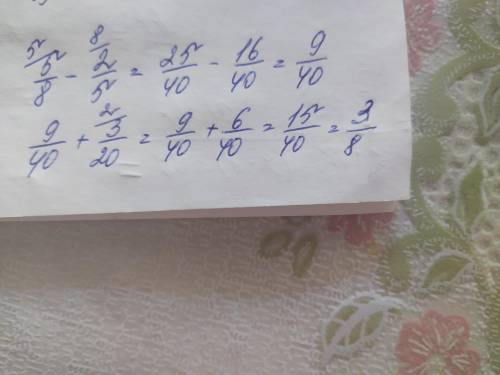 5/8 ⁵ - 2/5 ⁸ = 25/40 - 16/40 = 9/40
9/40 + 3/20 ² = 9/40 + 6/40 = 15/40 = 3/8